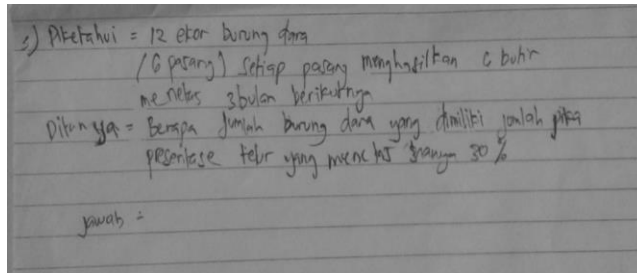 1) Diketahui = 12 ekor burung dara
(6 pasang) setiap pasang menghasilkan 6 buhir
menetes 3 bulan berikutnya
Ditanya = Berapa Jumlah burung dara yang dimiliki jonlah jika
presentase telur yang menetas hanya 30 %
Jawab =